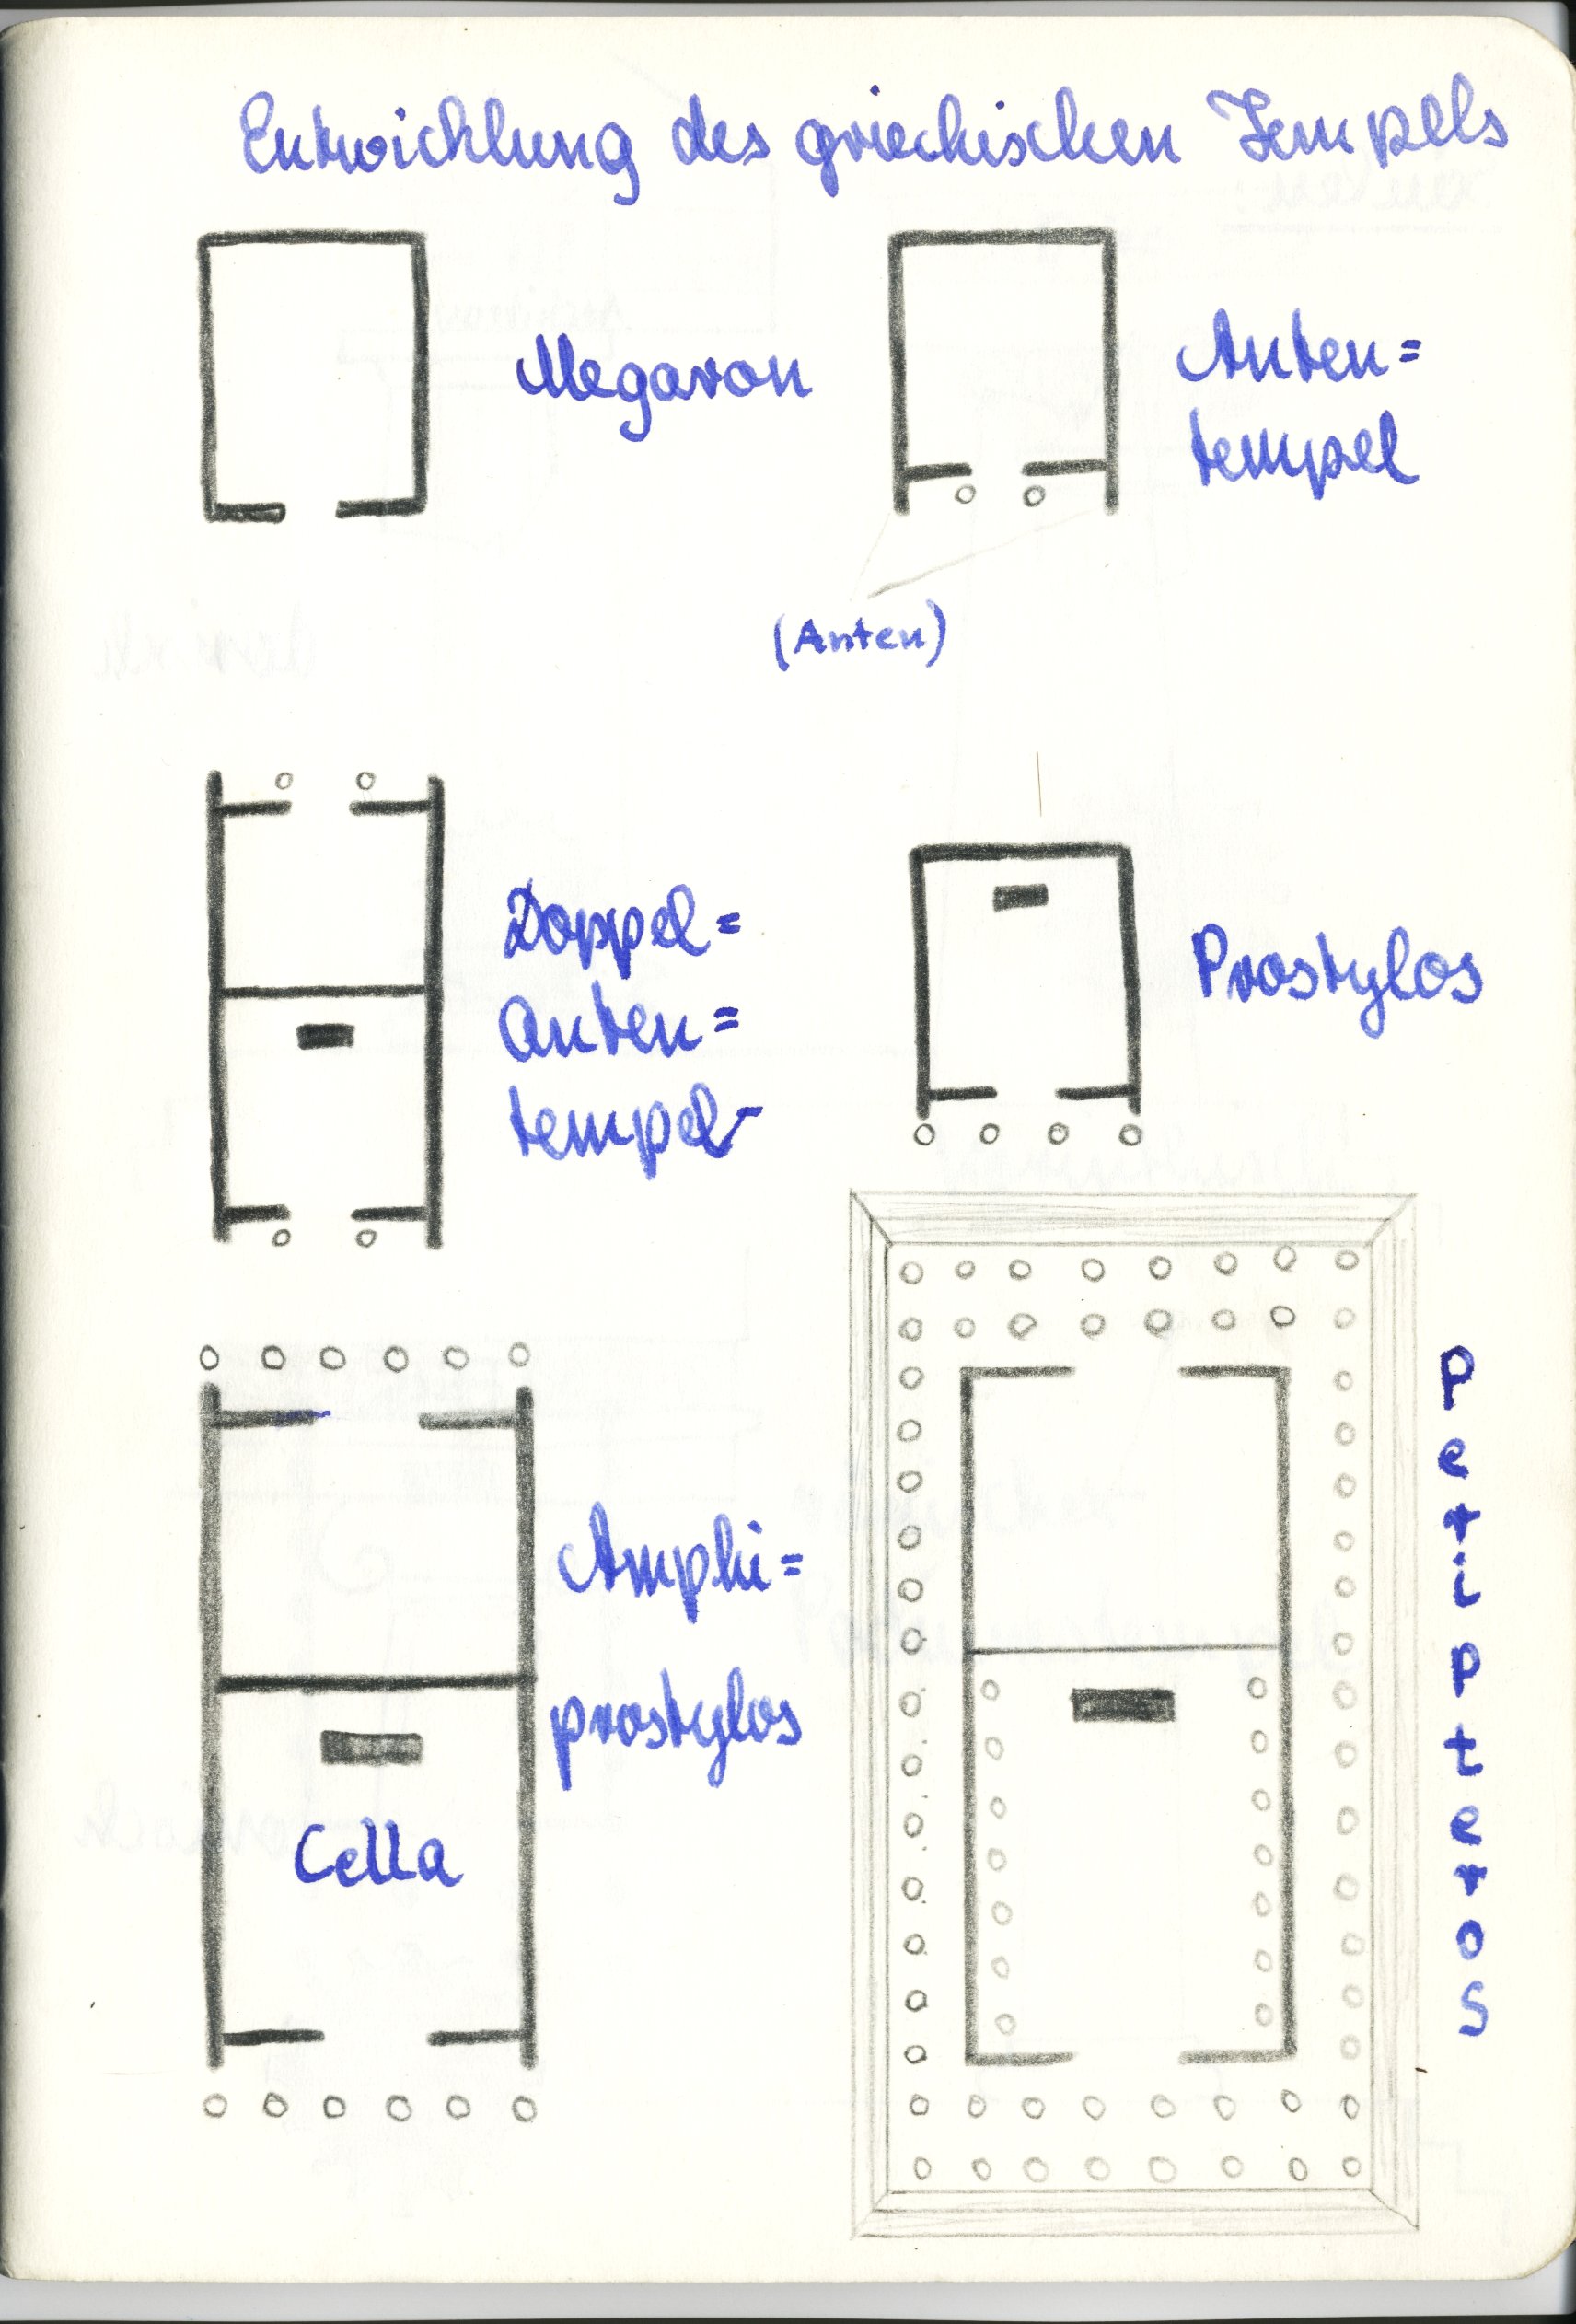 Entwicklung des griechischen Tempels
Megaron
Anten=
tempel
(Anten)
Doppel=
anten=
tempel
Prostylos
Amphi=
prostylos
Cella
Peripteros